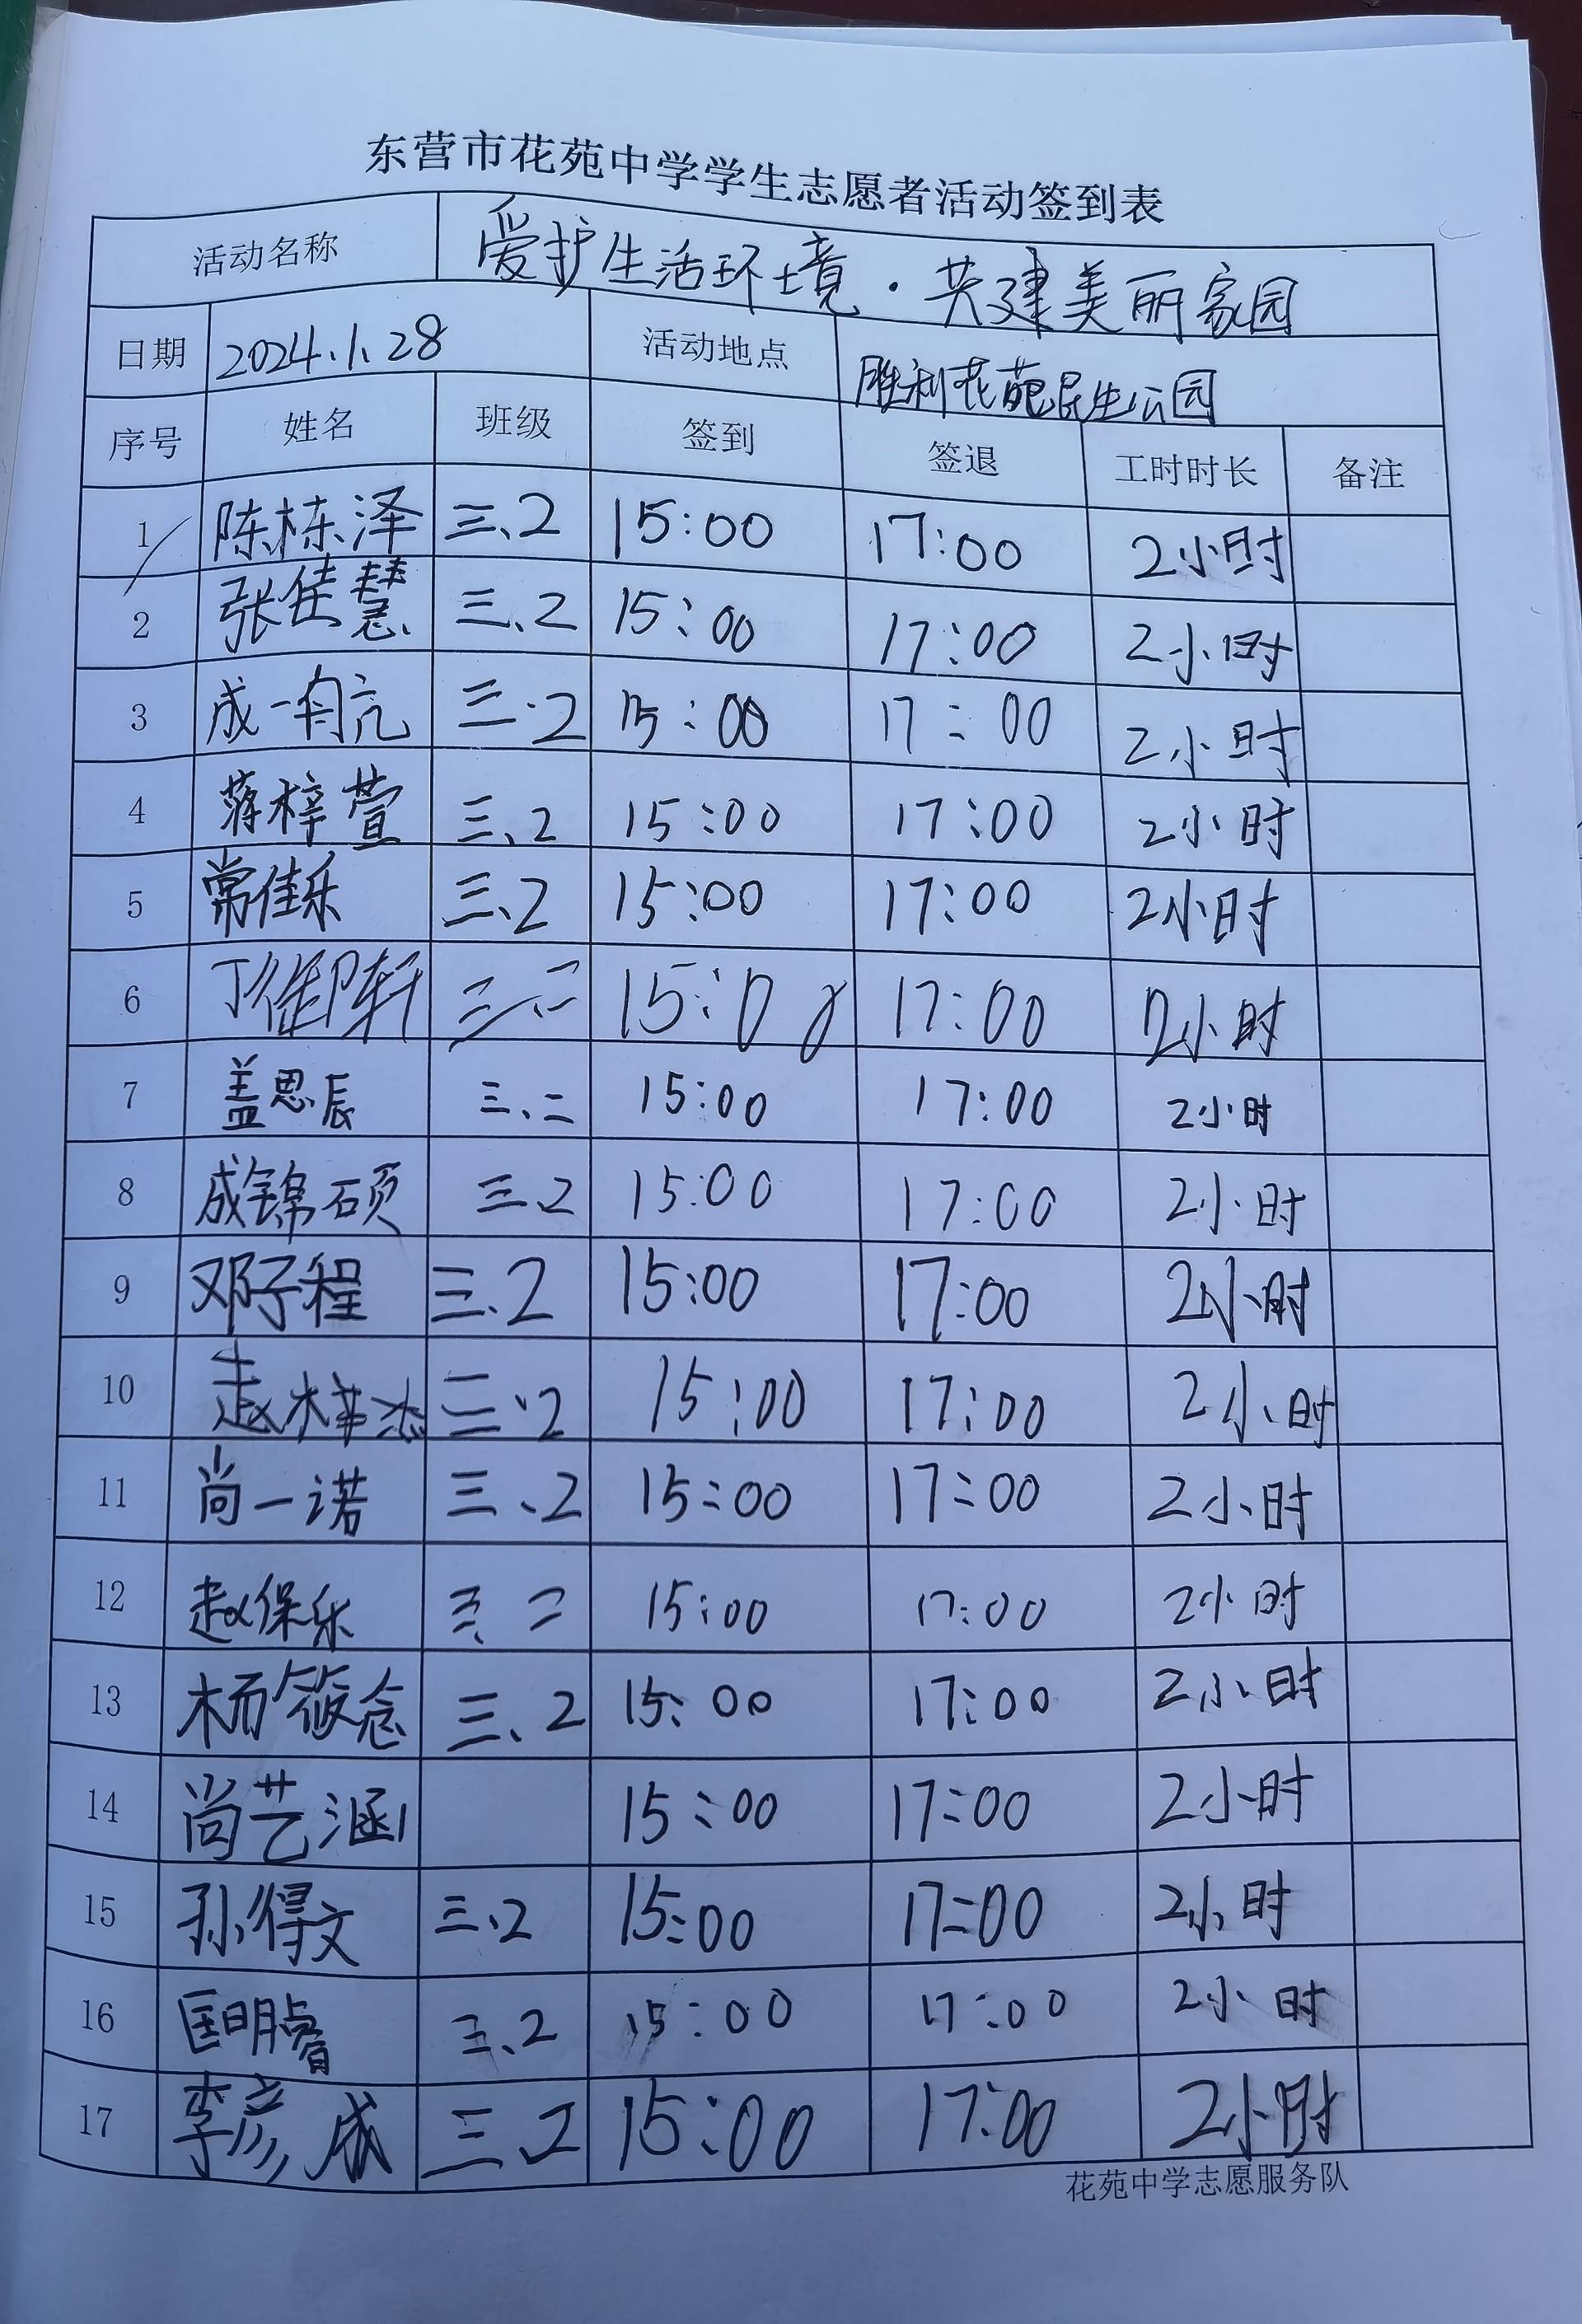 东营市花苑中学学生志愿者活动签到表
活动名称 爱护生活环境·共建美丽家园
日期 2024.1.28 活动地点 胜利花苑民生公园
序号 姓名 班级 签到 签退 工时时长 备注
1 陈栋泽 三、2 15:00 17:00 2小时
2 张佳慧 三、2 15:00 17:00 2小时
3 成一 三·2 15:00 17:00 2小时
4 蒋梓萱 三、2 15:00 17:00 2小时
5 常佳乐 三、2 15:00 17:00 2小时
6 丁 轩 三、二 15:00 17:00 2小时
7 盖思辰 三、二 15:00 17:00 2小时
8 成锦硕 三、2 15:00 17:00 2小时
9 邓子程 三、2 15:00 17:00 2小时
10 赵梓 三、2 15:00 17:00 2小时
11 尚一诺 三、2 15:00 17:00 2小时
12 赵保乐 三、二 15:00 17:00 2小时
13 杨筱念 三、2 15:00 17:00 2小时
14 尚艺涵 15:00 17:00 2小时
15 孙得文 三、2 15:00 17:00 2小时
16 匡明睿 三、2 15:00 17:00 2小时
17 李彦成 三、2 15:00 17:00 2小时
花苑中学志愿服务队